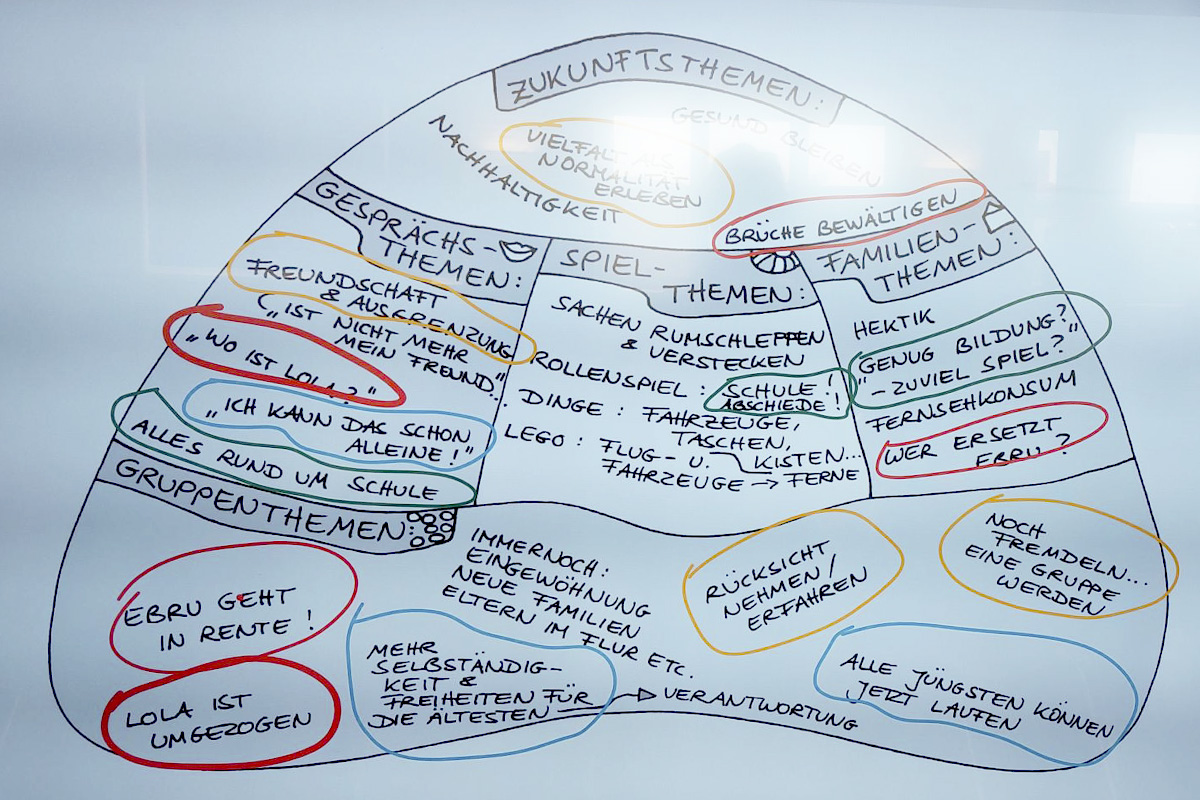 ZUKUNFTSTHEMEN:
GESUND BLEIBEN
NACHHALTIGKEIT
VIELFALT ALS
NORMALITÄT
ERLEBEN
BRÜCHE BEWÄLTIGEN
GESPRÄCHS-
THEMEN:
FREUNDSCHAFT
& AUSGRENZUNG
(„IST NICHT MEHR
MEIN FREUND"...
„WO IST LOLA?"
„ICH KANN DAS SCHON
ALLEINE!"
ALLES RUND UM SCHULE
SPIEL-
THEMEN:
SACHEN RUMSCHLEPPEN
& VERSTECKEN
ROLLENSPIEL: SCHULE!
ABSCHIEDE!
DINGE: FAHRZEUGE,
TASCHEN,
KISTEN...
LEGO: FLUG- U.
FAHRZEUGE → FERNE
FAMILIEN-
THEMEN:
HEKTIK
„GENUG BILDUNG?
- ZUVIEL SPIEL?"
FERNSEHKONSUM
WER ERSETZT
EBRU?
GRUPPENTHEMEN:
EBRU GEHT
IN RENTE!
LOLA IST
UMGEZOGEN
IMMERNOCH:
EINGEWÖHNUNG
NEUE FAMILIEN
ELTERN IM FLUR ETC.
MEHR
SELBSTÄNDIG-
KEIT &
FREIHEITEN FÜR
DIE ÄLTESTEN
VERANTWORTUNG
RÜCKSICHT
NEHMEN/
ERFAHREN
NOCH
FREMDELN...
EINE GRUPPE
WERDEN
ALLE JÜNGSTEN KÖNNEN
JETZT LAUFEN